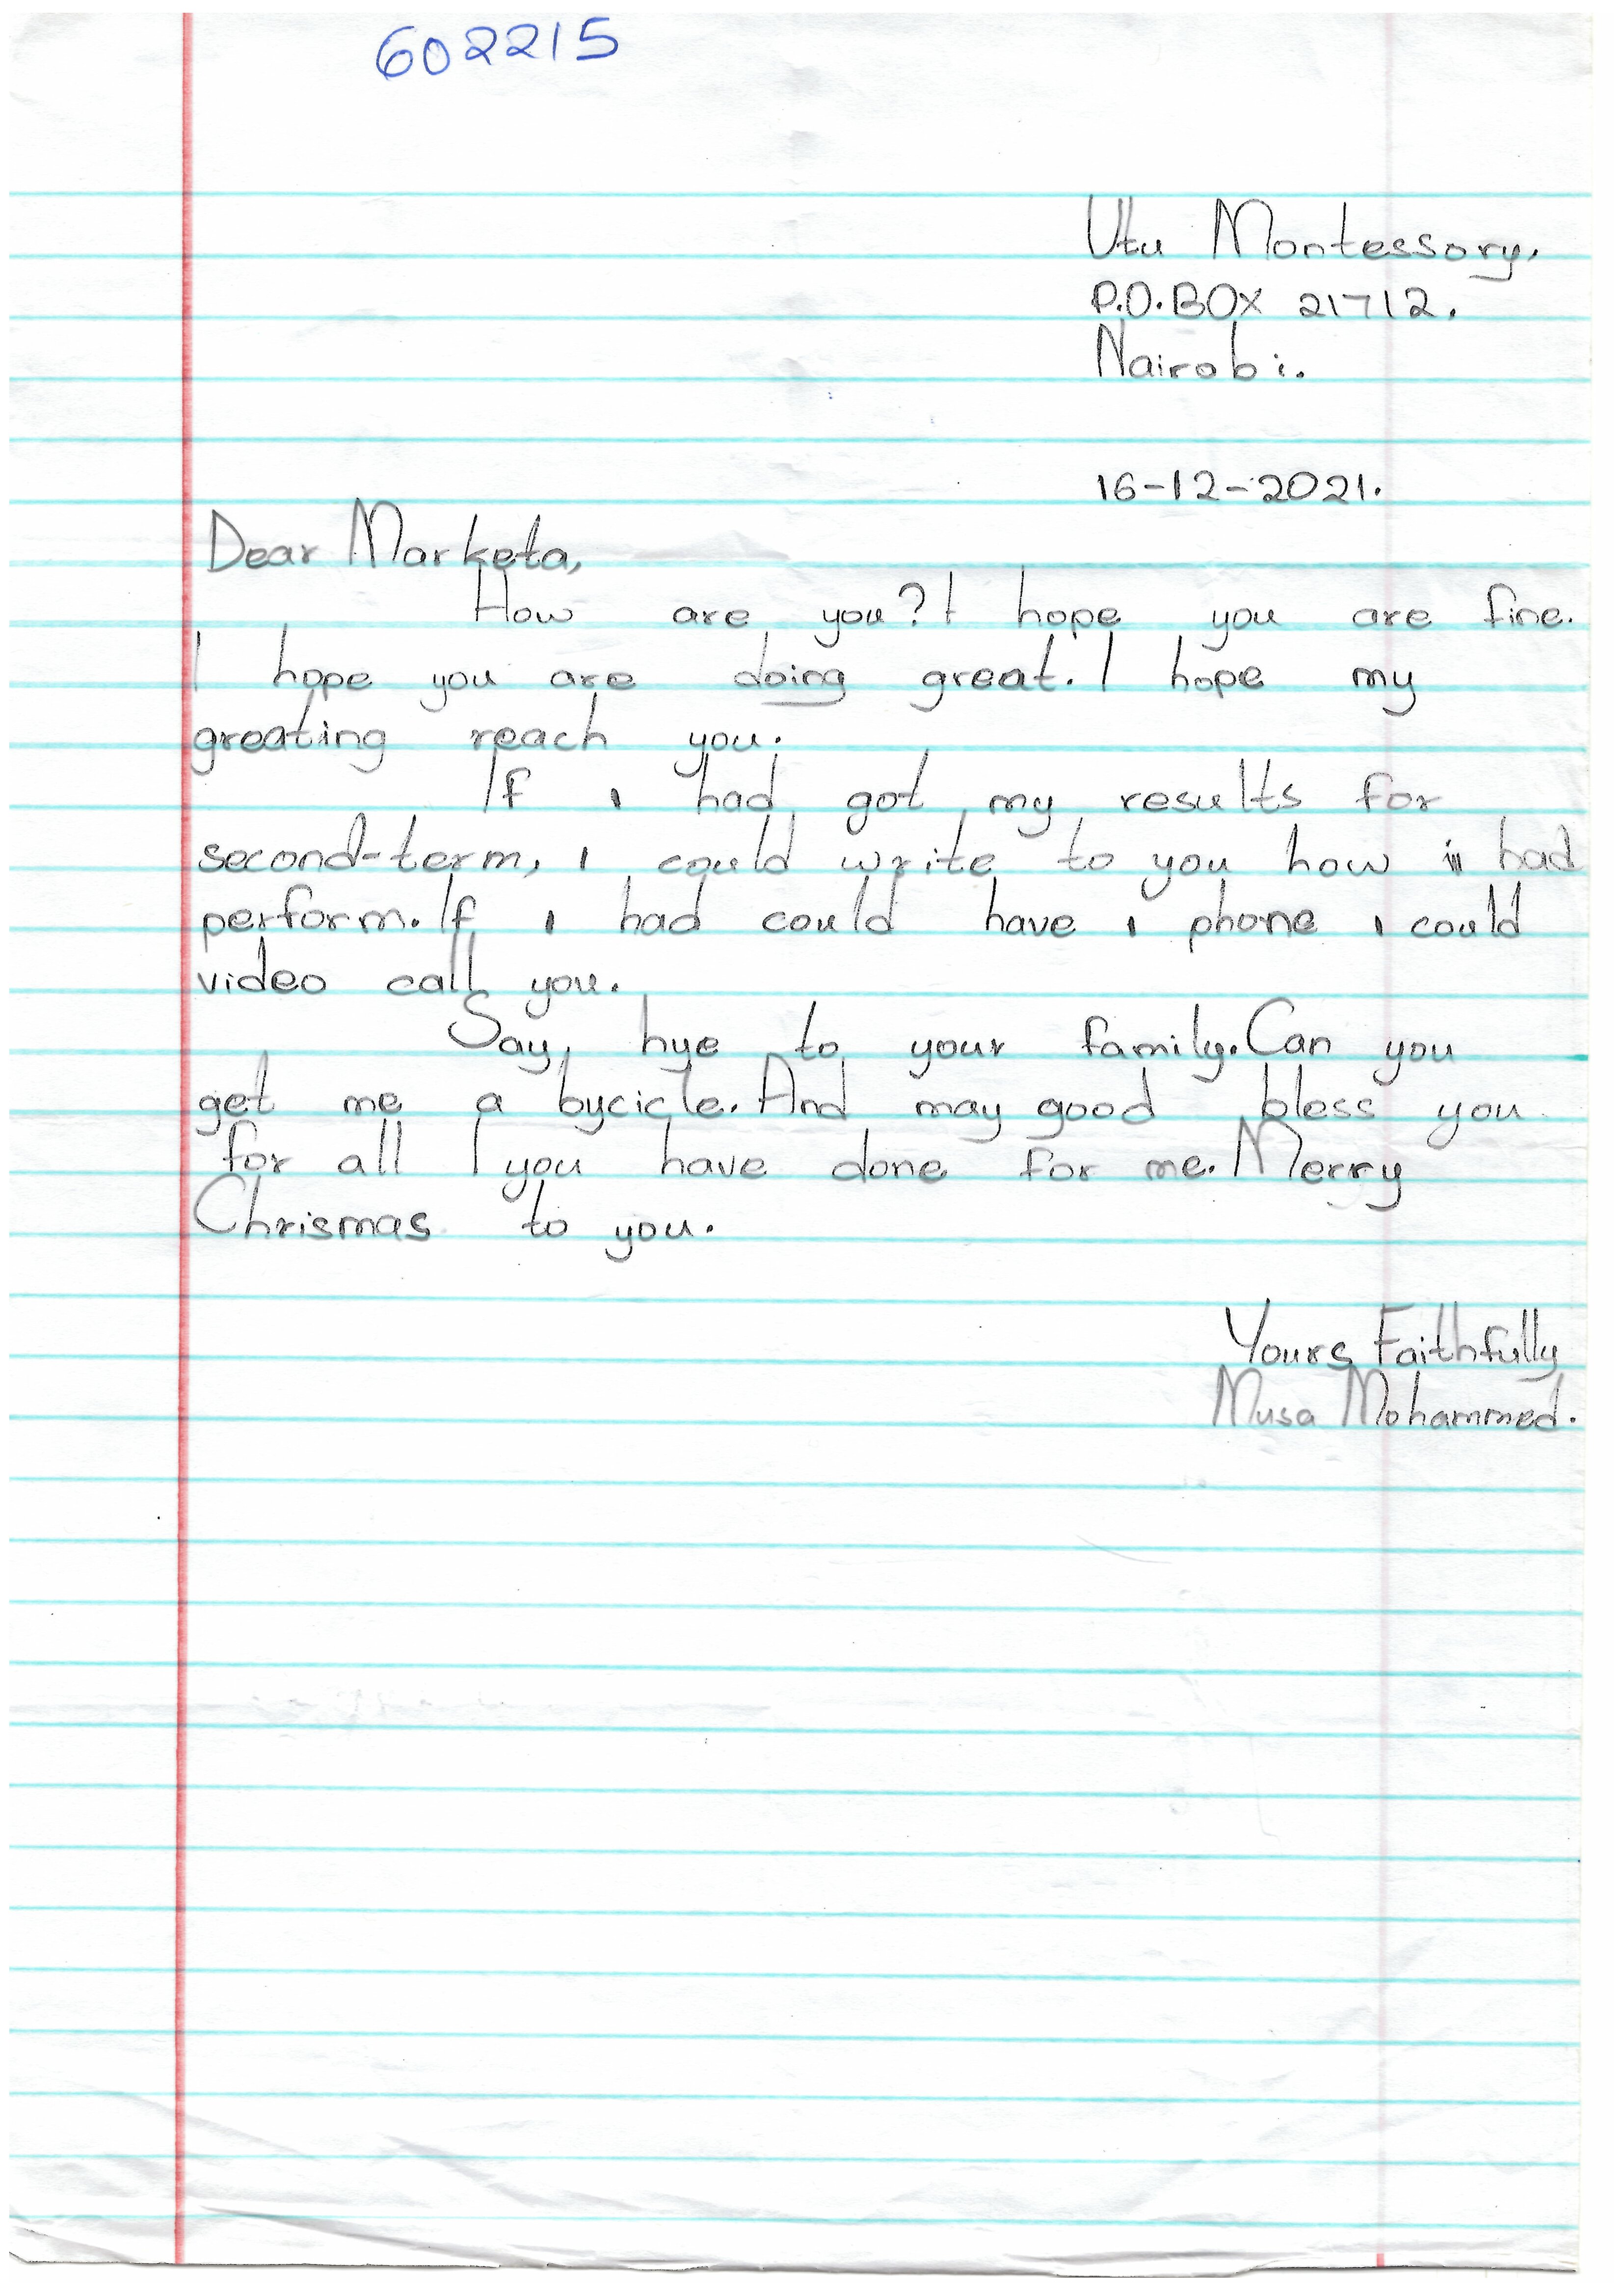 602215
Utu Montessory.
P.O.BOX 21712.
Nairobi.
16-12-2021.
Dear Marketa,
How are you? I hope you are fine.
I hope you are doing great. I hope my
greating reach you.
If i had got my results for
second-term, i could write to you how i had
perform. If i had could have i phone i could
video call you.
Say hye to your family. Can you
get me a bycicle. And may good bless you
for all I you have done for me. Merry
Chrismas to you.
Yours Faithfully
Musa Mohammed.